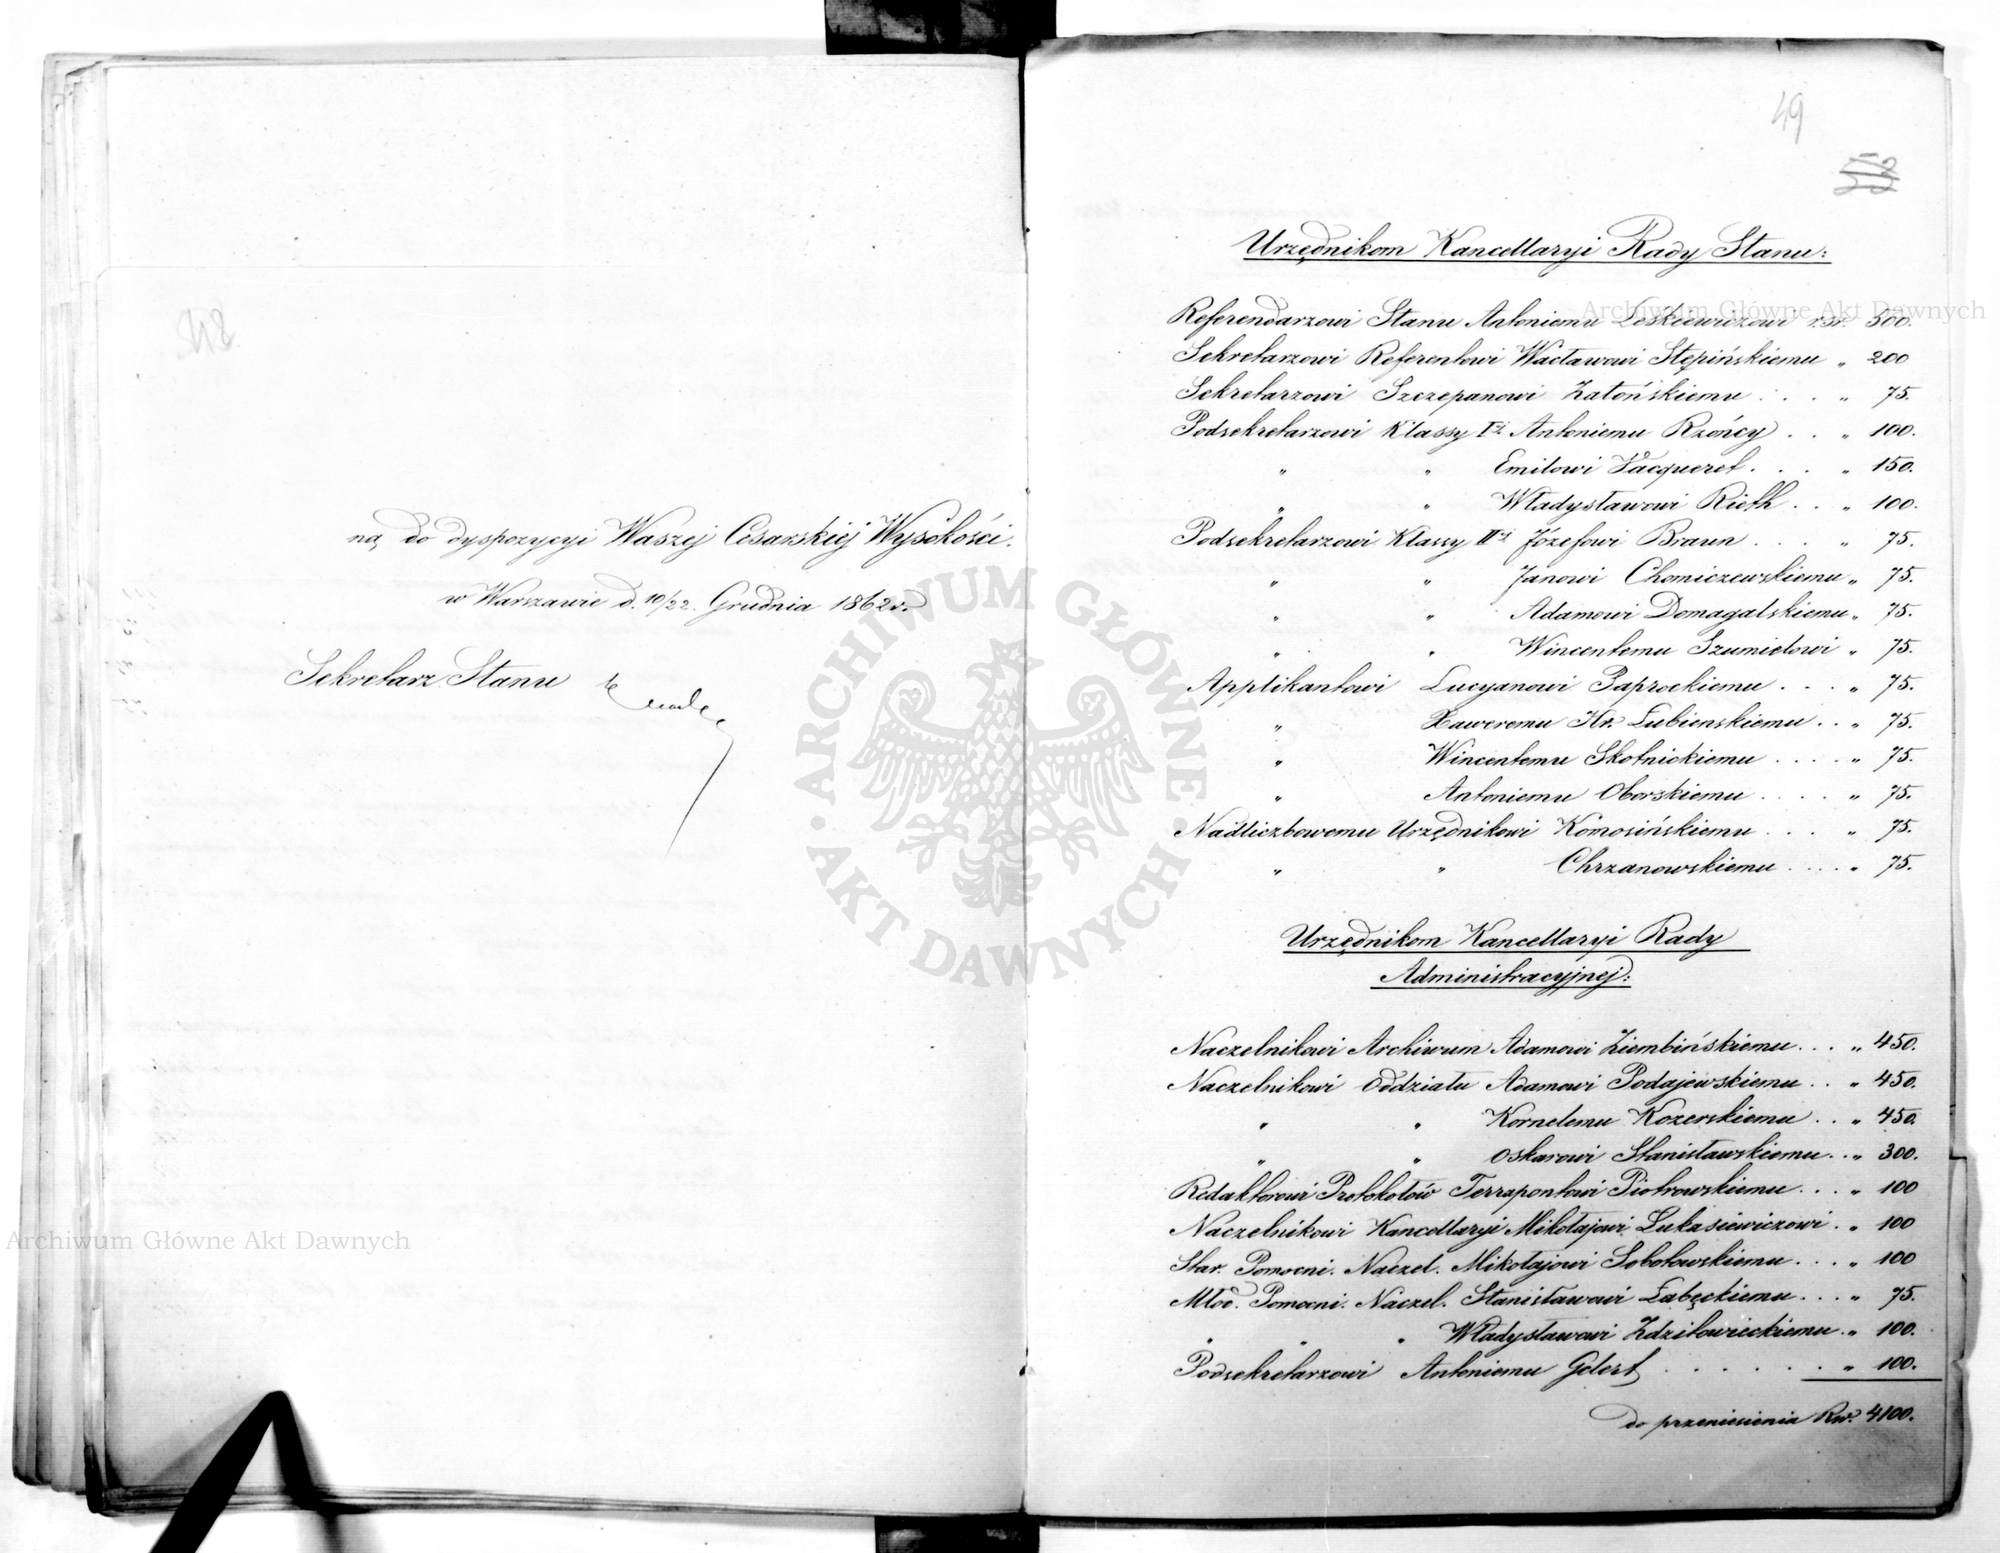 na, do dyspozycyi Waszej Cesarskiej Wysokości.
w Warszawie d. 10/22. Grudnia 1862 r.
Sekretarz Stanu
49
53
Urzędnikom Kancellaryi Rady Stanu:
Referendarzowi Stanu Antoniemu Leskiewiczowi rsr. 500.
Sekretarzowi Referentowi Wacławowi Stępińskiemu „ 200
Sekretarzowi Szczepanowi Zatońskiemu . . . „ 75.
Podsekretarzowi Klassy Iéj Antoniemu Rzońcy . . „ 100.
„ „ Emilowi Vacqueret . . . „ 150.
„ „ Władysławowi Rieth . . „ 100.
Podsekretarzowi Klassy IIéj Józefowi Braun . . . „ 75.
„ „ Janowi Chomiczewskiemu „ 75.
„ „ Adamowi Domagalskiemu „ 75.
„ „ Wincentemu Szumielowi „ 75.
Applikantowi Lucyanowi Paprockiemu . . . „ 75.
„ Xaweremu Hr. Łubienskiemu . . „ 75.
„ Wincentemu Skotnickiemu . . . . „ 75.
„ Antoniemu Oborskiemu . . . . „ 75.
Nadliczbowemu Urzędnikowi Komosińskiemu . . . „ 75.
„ „ Chrzanowskiemu . . . . „ 75.
Urzędnikom Kancellaryi Rady
Administracyjnej:
Naczelnikowi Archiwum Adamowi Ziembińskiemu . . . „ 450.
Naczelnikowi Oddziału Adamowi Podajewskiemu . . „ 450.
„ „ Kornelemu Kozerskiemu . . „ 450.
„ „ Oskarowi Stanisławskiemu . . „ 300.
Redaktorowi Protokołów Terrapontowi Piotrowskiemu . . . „ 100
Naczelnikowi Kancellaryi Mikołajowi Łukasiewiczowi . „ 100
Star. Pomocni. Naczel. Mikołajowi Sobolewskiemu . . . „ 100
Młod. Pomocni. Naczel. Stanisławowi Łabęckiemu . . . „ 75.
„ „ „ Władysławowi Zdziłowieckiemu . „ 100.
Podsekretarzowi Antoniemu Gelert . . . . . . „ 100.
do przeniesienia Rsr. 4100.
Archiwum Główne Akt Dawnych
Archiwum Główne Akt Dawnych
ARCHIWUM GŁÓWNE · AKT DAWNYCH ·